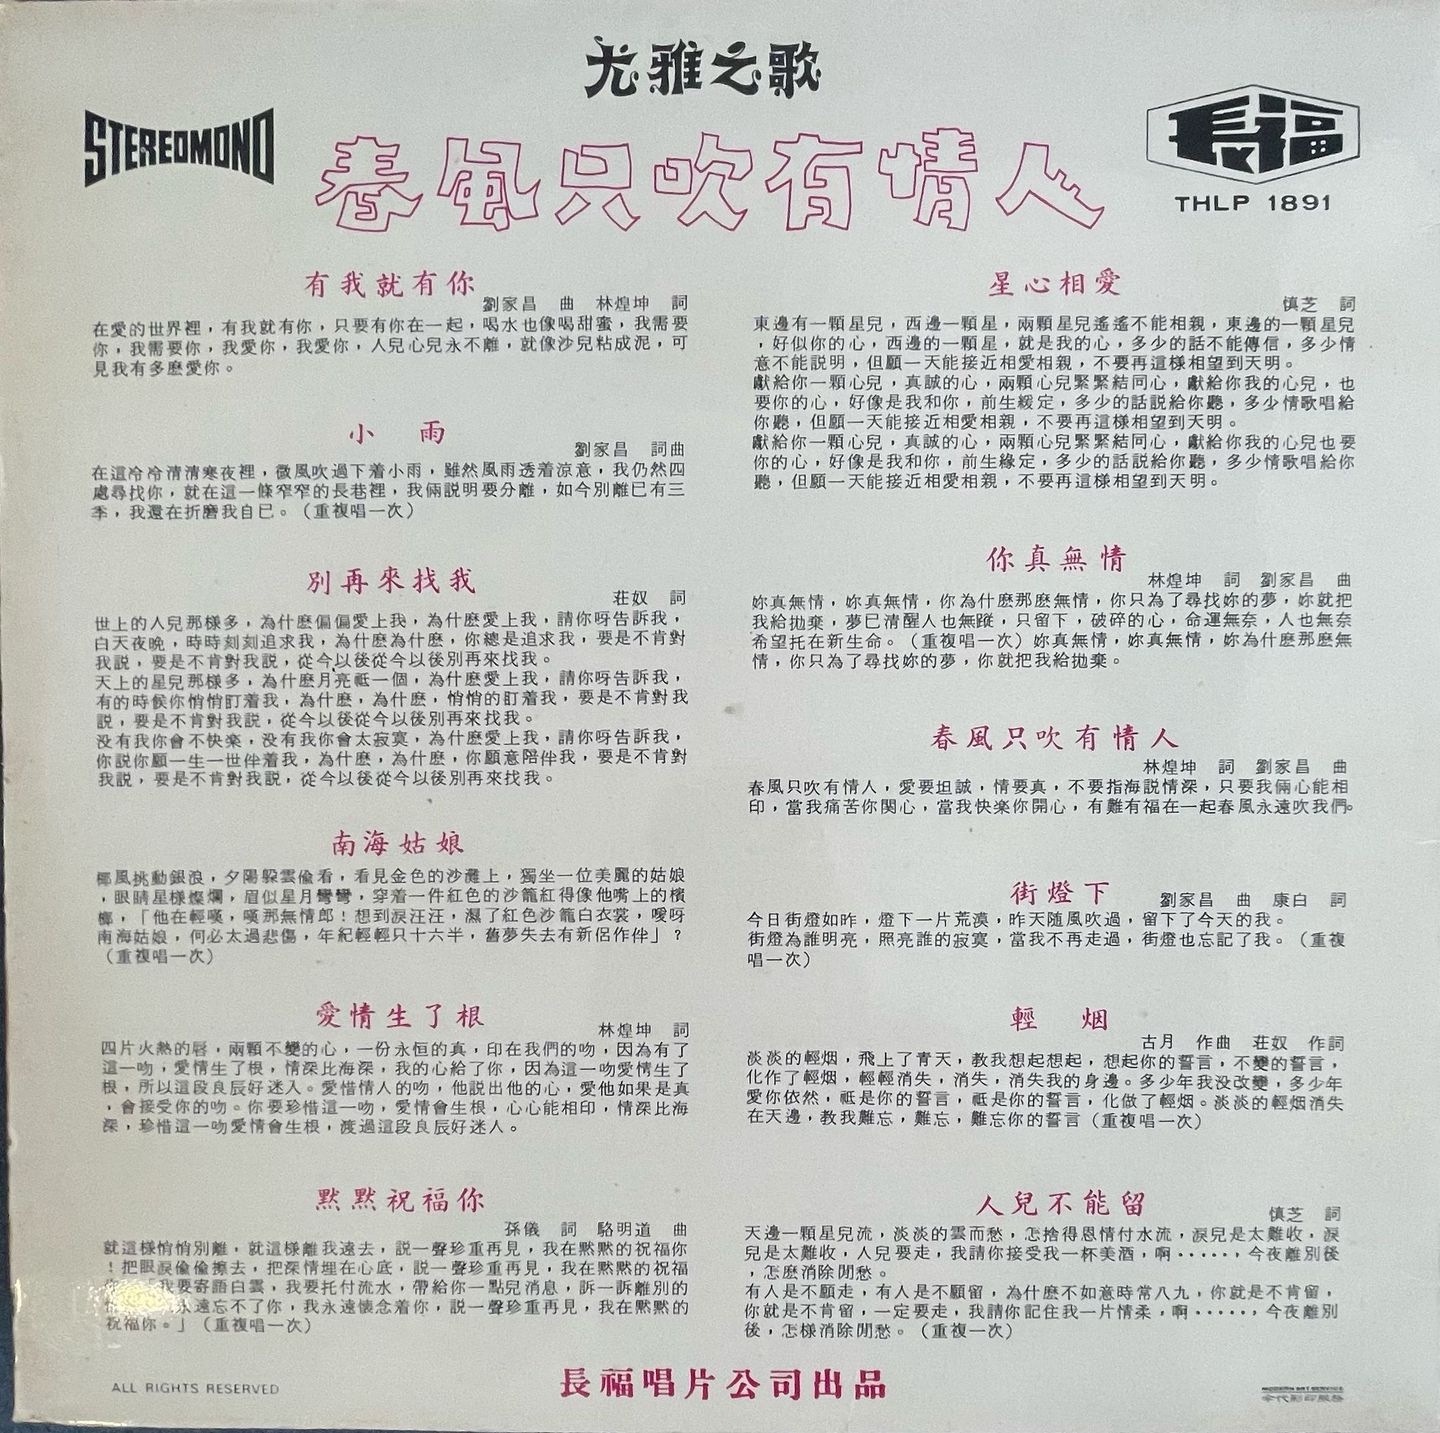 尤雅之歌
STEREOMONO
春風只吹有情人
長福
THLP 1891
有我就有你
劉家昌 曲 林煌坤 詞
在愛的世界裡，有我就有你，只要有你在一起，喝水也像喝甜蜜，我需要
你，我需要你，我愛你，我愛你，人兒心兒永不離，就像沙兒粘成泥，可
見我有多麽愛你。
小 雨
劉家昌 詞曲
在這冷冷清清寒夜裡，微風吹過下着小雨，雖然風雨透着凉意，我仍然四
處尋找你，就在這一條窄窄的長巷裡，我倆説明要分離，如今別離已有三
季，我還在折磨我自已。（重複唱一次）
別再來找我
荘奴 詞
世上的人兒那様多，為什麽偏偏愛上我，為什麽愛上我，請你呀告訴我，
白天夜晩，時時刻刻追求我，為什麽為什麽，你總是追求我，要是不肯對
我説，要是不肯對我説，從今以後從今以後別再來找我。
天上的星兒那様多，為什麽月亮祗一個，為什麽愛上我，請你呀告訴我，
有的時候你悄悄盯着我，為什麽，為什麽，悄悄的盯着我，要是不肯對我
説，要是不肯對我説，從今以後從今以後別再來找我。
没有我你會不快楽，没有我你會太寂寞，為什麽愛上我，請你呀告訴我，
你説你願一生一世伴着我，為什麽，為什麽，你願意陪伴我，要是不肯對
我説，要是不肯對我説，從今以後從今以後別再來找我。
南海姑娘
椰風挑動銀浪，夕陽躲雲偸看，看見金色的沙灘上，獨坐一位美麗的姑娘
，眼睛星様燦爛，眉似星月彎彎，穿着一件紅色的沙籠紅得像他嘴上的檳
榔，「他在輕嘆，嘆那無情郎！想到淚汪汪，濕了紅色沙籠白衣裳，噯呀
南海姑娘，何必太過悲傷，年紀輕輕只十六半，舊夢失去有新侶作伴」？
（重複唱一次）
愛情生了根
林煌坤 詞
四片火熱的唇，兩顆不變的心，一份永恒的真，印在我們的吻，因為有了
這一吻，愛情生了根，情深比海深，我的心給了你，因為這一吻愛情生了
根，所以這段良辰好迷入。愛惜情人的吻，他説出他的心，愛他如果是真
，會接受你的吻。你要珍惜這一吻，愛情會生根，心心能相印，情深比海
深，珍惜這一吻愛情會生根，渡過這段良辰好迷人。
默默祝福你
孫儀 詞 駱明道 曲
就這様悄悄別離，就這様離我遠去，説一聲珍重再見，我在黙黙的祝福你
！把眼淚偸偸擦去，把深情埋在心底，説一聲珍重再見，我在黙黙的祝福
我要寄語白雲，我要托付流水，帶給你一點兒消息，訴一訴離別的
永遠忘不了你，我永遠懷念着你，説一聲珍重再見，我在黙黙的
祝福你。」（重複唱一次）
星心相愛
慎芝 詞
東邊有一顆星兒，西邊一顆星，兩顆星兒遙遙不能相親，東邊的一顆星兒
，好似你的心，西邊的一顆星，就是我的心，多少的話不能傳信，多少情
意不能説明，但願一天能接近相愛相親，不要再這様相望到天明。
獻給你一顆心兒，真誠的心，兩顆心兒緊緊結同心，獻給你我的心兒，也
要你的心，好像是我和你，前生緩定，多少的話説給你聽，多少情歌唱給
你聽，但願一天能接近相愛相親，不要再這様相望到天明。
獻給你一顆心兒，真誠的心，兩顆心兒緊緊結同心，獻給你我的心兒也要
你的心，好像是我和你，前生緣定，多少的話説給你聽，多少情歌唱給你
聽，但願一天能接近相愛相親，不要再這様相望到天明。
你真無情
林煌坤 詞 劉家昌 曲
妳真無情，妳真無情，你為什麽那麽無情，你只為了尋找妳的夢，妳就把
我給拋棄，夢已清醒人也無蹤，只留下，破碎的心，命運無奈，人也無奈
希望托在新生命。（重複唱一次）妳真無情，妳真無情，妳為什麽那麽無
情，你只為了尋找妳的夢，你就把我給拋棄。
春風只吹有情人
林煌坤 詞 劉家昌 曲
春風只吹有情人，愛要坦誠，情要真，不要指海説情深，只要我倆心能相
印，當我痛苦你関心，當我快楽你開心，有難有福在一起春風永遠吹我們。
街燈下
劉家昌 曲 康白 詞
今日街燈如昨，燈下一片荒漠，昨天随風吹過，留下了今天的我。
街燈為誰明亮，照亮誰的寂寞，當我不再走過，街燈也忘記了我。（重複
唱一次）
輕 烟
古月 作曲 荘奴 作詞
淡淡的輕烟，飛上了青天，教我想起想起，想起你的誓言，不變的誓言，
化作了輕烟，輕輕消失，消失，消失我的身邊。多少年我没改變，多少年
愛你依然，祗是你的誓言，祗是你的誓言，化做了輕烟。淡淡的輕烟消失
在天邊，教我難忘，難忘，難忘你的誓言（重複唱一次）
人兒不能留
慎芝 詞
天邊一顆星兒流，淡淡的雲而愁，怎捨得恩情付水流，淚兒是太難收，淚
兒是太難收，人兒要走，我請你接受我一杯美酒，啊······，今夜離別後
，怎麽消除閒愁。
有人是不願走，有人是不願留，為什麽不如意時常八九，你就是不肯留，
你就是不肯留，一定要走，我請你記住我一片情柔，啊······，今夜離別
後，怎様消除閒愁。（重複一次）
長福唱片公司出品
ALL RIGHTS RESERVED
MODERN ART SERVICE